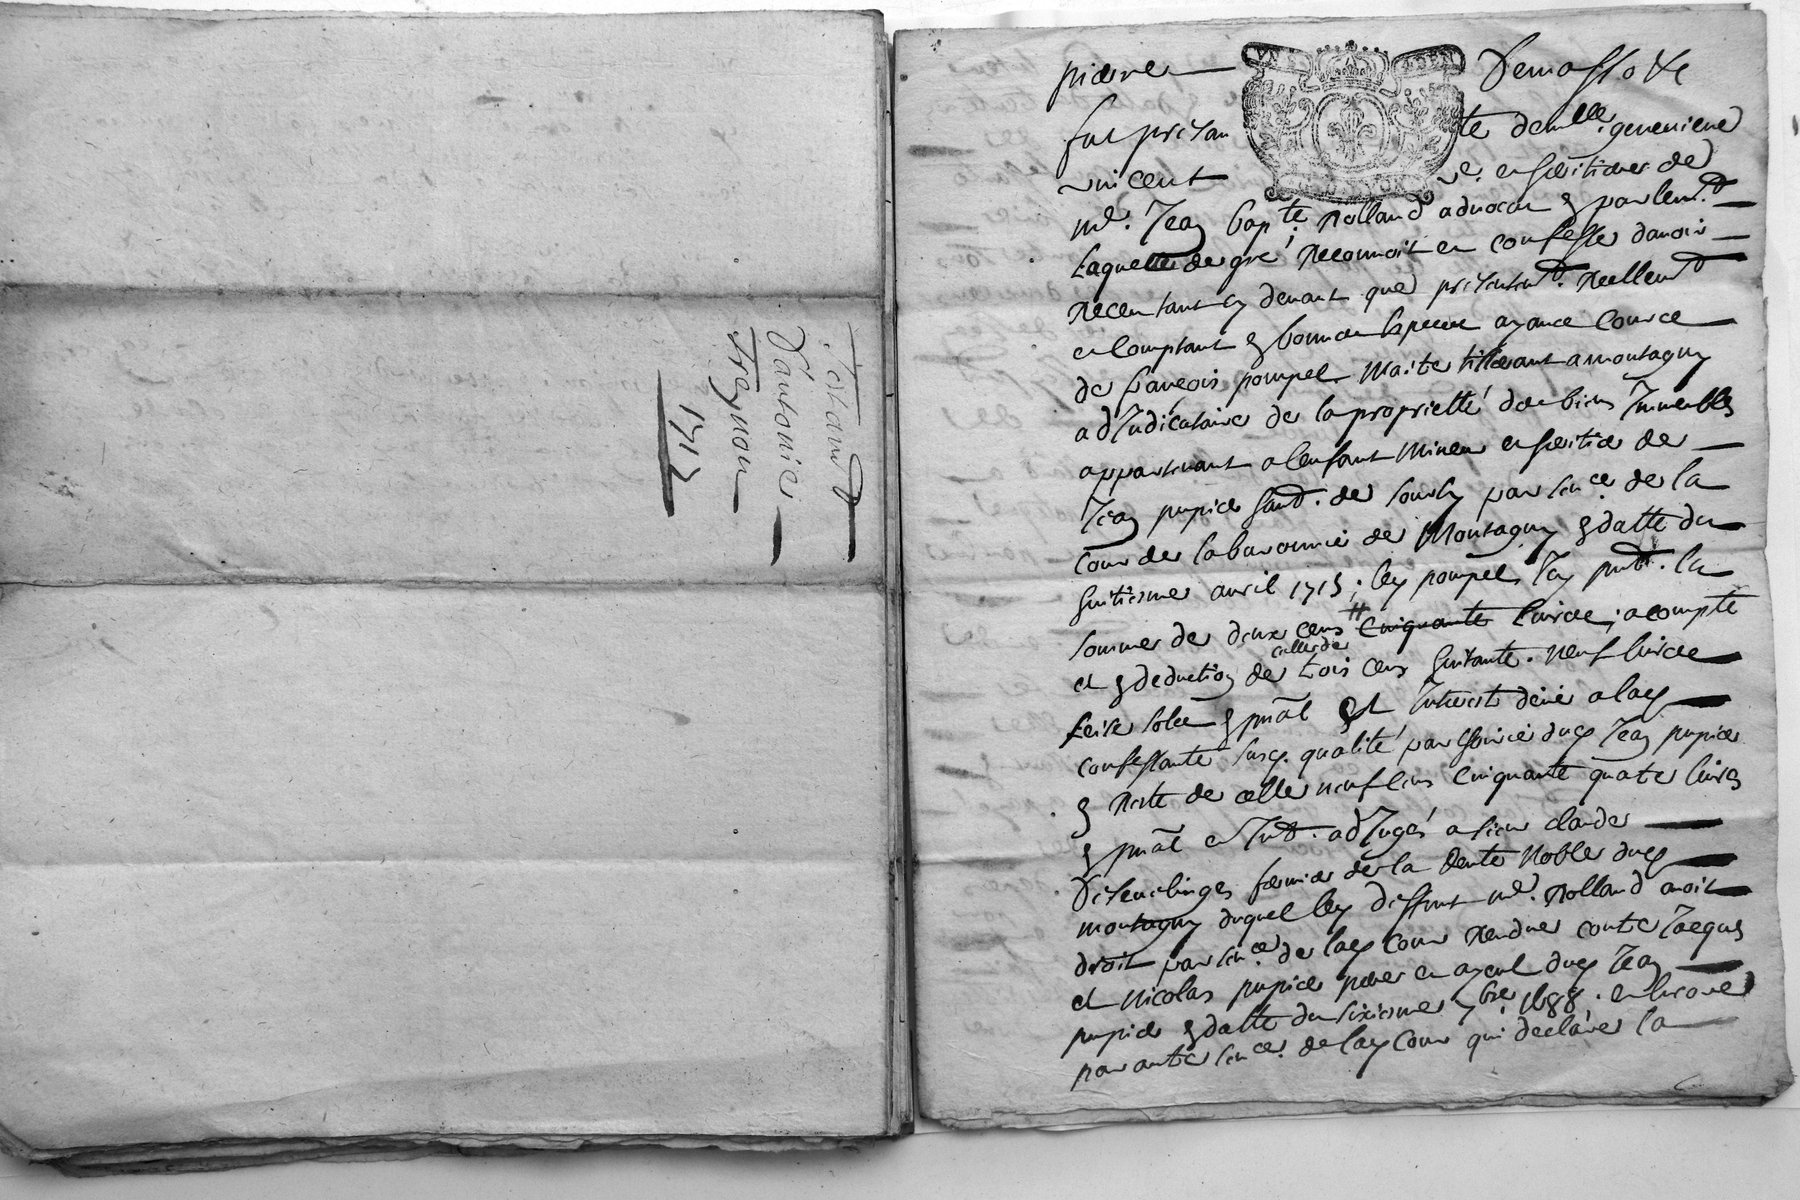 Testamt
D'antonie
Treynon
1712
pierre Demassotte
fut présante demlle. geneuieue
vincent ve. en heritiere de
me. Jean bapte. Rolland aduocat en parlemt.
Laquelle de gré Reconnoit en confesse dauoir
Receu tant cy deuant que présentemt. Reellemt
en Comptant en bonne espece ayance Cource
de françois pompel Maitre tisserant a montagny
adJudicataire de la proprietté des biens Immeubles
appartenant a lenfant Mineur en heritier de
Jean pupier hant. de sourcy par sence. de la
Cour de la baronnie de Montagny en datte du
huitiesme auril 1713; ley pompel Icy pnt. la
somme de deux cens cinquante liures; acompte
et en deduction de celle de trois cens huitante neuf liures
seise sols en pnal et Interest deüe a lacy
confessante susy. qualité par hoirie ducy Jean pupier
en Reste de celle neuf cens cinquante quatre liures
en pnal en Int. adJugés a sieur claude
Desenelinges fermier de la Rente Noble ducy
montagny duquel ley deffunt me. Rolland auoit
droit par sence. de lacy Cour Rendue contre Jacques
et Nicolas pupier pere en ayeul ducy Jean
pupier en datte du sixiesme 7bre 1688. en encore
par autre sence. de lacy Cour qui declare la